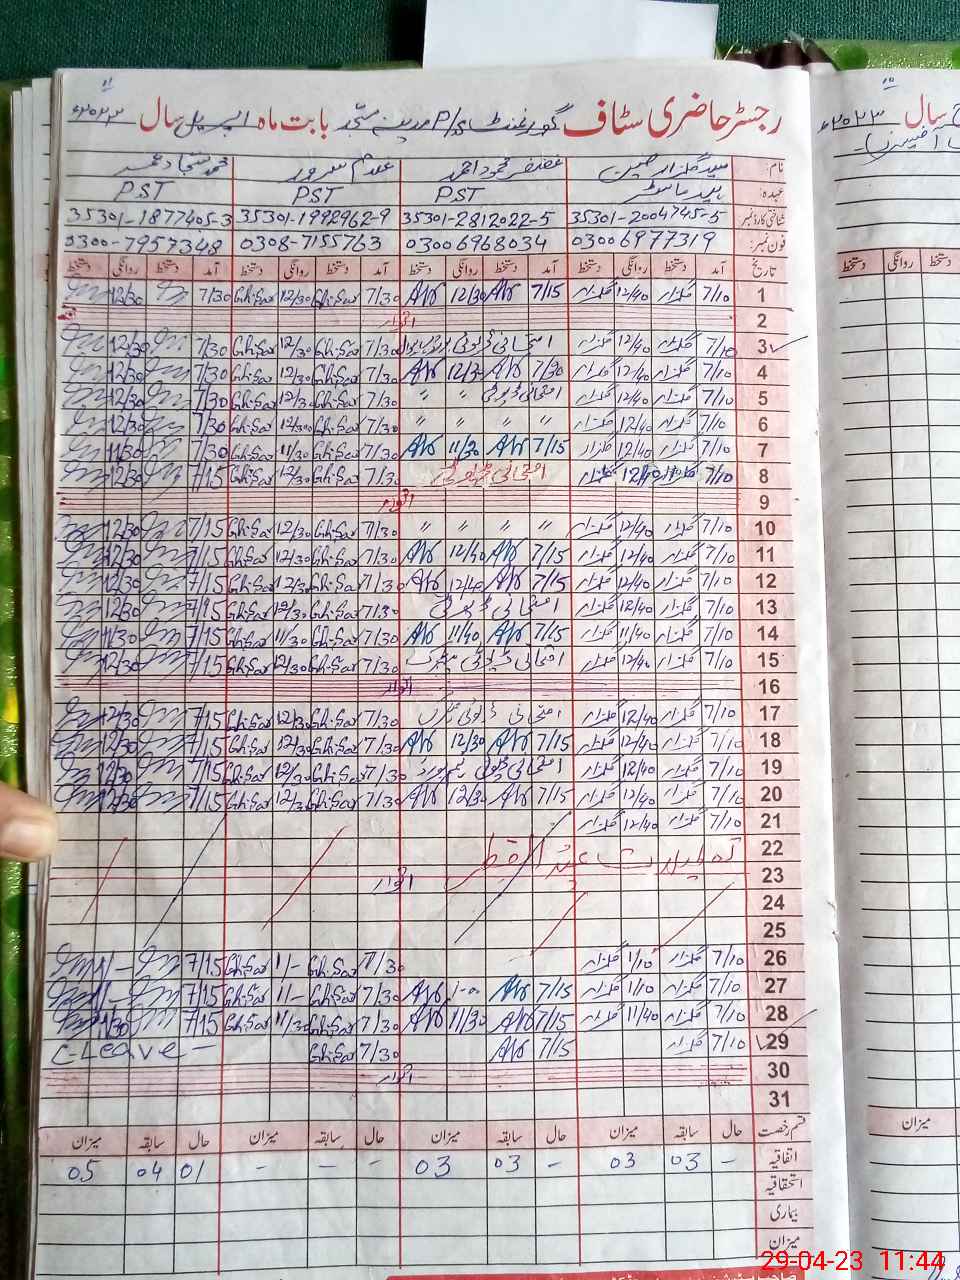 رجسٹر حاضری سٹاف گورنمنٹ P/S مدینہ مسجد بابت ماہ اپریل سال ۲۰۲۳ء
نام: سید گلزار حسین غضنفر محمود احمد محمد سجاد
عہدہ: ہیڈ ماسٹر PST PST PST
شناختی کارڈ نمبر 35301-2004745-5 35301-2812022-5 35301-1992962-9 35301-1877405-3
فون نمبر: 03006977319 03006968034 0308-7155763 0300-7957348
تاریخ آمد دستخط روانگی دستخط آمد دستخط روانگی دستخط آمد دستخط روانگی دستخط آمد دستخط روانگی دستخط
1 7/10 گلزار 12/40 گلزار 7/15 12/30 7/30 Gh.Sar 12/30 Gh.Sar 7/30 12/30
2 اتوار
3 7/10 گلزار 12/40 گلزار امتحانی ڈیوٹی 7/30 Gh.Sar 12/30 Gh.Sar 7/30 12/30
4 7/10 گلزار 12/40 گلزار 7/30 12/30 7/30 Gh.Sar 12/30 Gh.Sar 7/30 12/30
5 7/10 گلزار 12/40 گلزار امتحانی ڈیوٹی " " 7/30 Gh.Sar 12/30 Gh.Sar 7/30 12/30
6 7/10 گلزار 12/40 گلزار " " " " 7/30 Gh.Sar 12/30 Gh.Sar 7/30 12/30
7 7/10 گلزار 12/40 گلزار 7/15 11/30 7/30 Gh.Sar 11/30 Gh.Sar 7/30 11/30
8 7/10 گلزار 12/40 گلزار امتحانی ڈیوٹی 7/30 Gh.Sar 12/30 Gh.Sar 7/15 12/30
9 اتوار
10 7/10 گلزار 12/40 گلزار " " " " 7/30 Gh.Sar 12/30 Gh.Sar 7/15 12/30
11 7/10 گلزار 12/40 گلزار 7/15 12/40 7/30 Gh.Sar 12/30 Gh.Sar 7/15 12/30
12 7/10 گلزار 12/40 گلزار 7/15 12/40 7/30 Gh.Sar 12/30 Gh.Sar 7/15 12/30
13 7/10 گلزار 12/40 گلزار امتحانی ڈیوٹی 7/30 Gh.Sar 12/30 Gh.Sar 7/15 12/30
14 7/10 گلزار 11/40 گلزار 7/15 11/40 7/30 Gh.Sar 11/30 Gh.Sar 7/15 11/30
15 7/10 گلزار 12/40 گلزار امتحانی ڈیوٹی میٹرک 7/30 Gh.Sar 12/30 Gh.Sar 7/15 12/30
16 اتوار
17 7/10 گلزار 12/40 گلزار امتحانی ڈیوٹی میٹرک 7/30 Gh.Sar 12/30 Gh.Sar 7/15 12/30
18 7/10 گلزار 12/40 گلزار 7/15 12/30 7/30 Gh.Sar 12/30 Gh.Sar 7/15 12/30
19 7/10 گلزار 12/40 گلزار امتحانی ڈیوٹی 7/30 Gh.Sar 12/30 Gh.Sar 7/15 12/30
20 7/10 گلزار 12/40 گلزار 7/15 12/30 7/30 Gh.Sar 12/30 Gh.Sar 7/15 12/30
21 7/10 گلزار 12/40 گلزار
22 تعطیلات عید الفطر
23 اتوار
24
25
26 7/10 گلزار 1/10 گلزار 7/30 Gh.Sar 1/- Gh.Sar 7/15 1/-
27 7/10 گلزار 1/10 گلزار 7/15 7/30 Gh.Sar 1/- Gh.Sar 7/15 1/-
28 7/10 گلزار 11/40 گلزار 7/15 11/30 7/30 Gh.Sar 11/30 Gh.Sar 7/15
29 7/10 گلزار 7/15 7/30 Gh.Sar C-Leave -
30 اتوار
31
قسم رخصت حال سابقہ میزان حال سابقہ میزان حال سابقہ میزان حال سابقہ میزان
اتفاقیہ - 03 03 - 03 03 - - - 01 04 05
استحقاقیہ
بیماری
میزان
سال ۲۰۲۳ء
دستخط روانگی دستخط
میزان
29-04-23 11:44